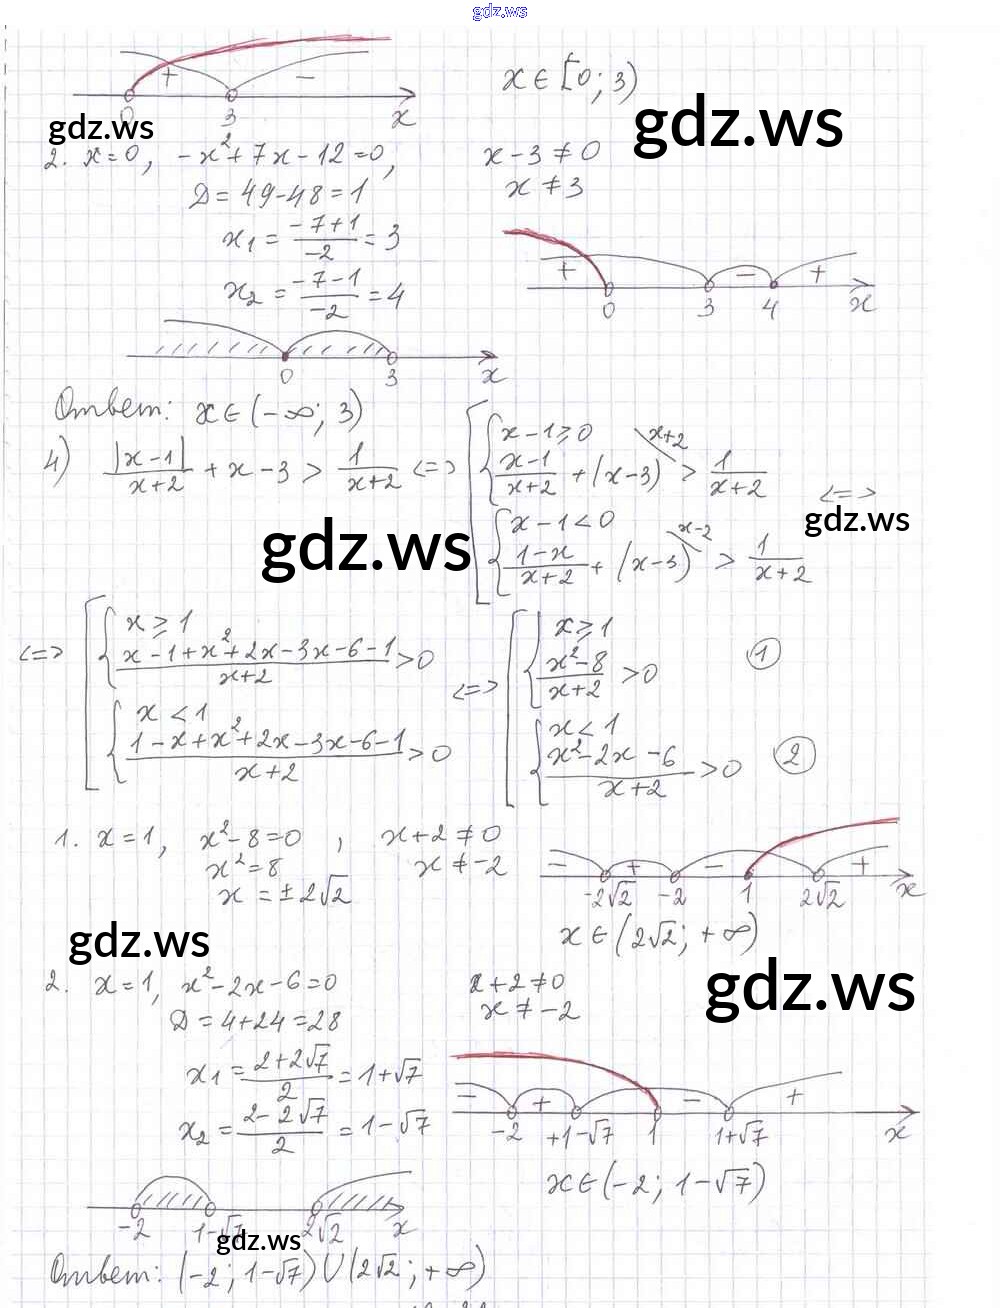 gdz.ws
+ −
0 3 x
x ∈ [0; 3)
gdz.ws
gdz.ws
2. x = 0, −x² + 7x − 12 = 0, x − 3 ≠ 0
D = 49 − 48 = 1 x ≠ 3
x₁ = (−7+1)/(−2) = 3
x₂ = (−7−1)/(−2) = 4
+ − +
0 3 4 x
0 3 x
Ответ: x ∈ (−∞; 3)
4) |x−1|/(x+2) + x − 3 > 1/(x+2) <=> [ { x − 1 ≥ 0
(x−1)/(x+2) + (x−3) x+2 > 1/(x+2) <=>
{ x − 1 < 0
(1−x)/(x+2) + (x−3) x−2 > 1/(x+2)
gdz.ws
gdz.ws
<=> [ { x ≥ 1
(x−1+x²+2x−3x−6−1)/(x+2) > 0
{ x < 1
(1−x+x²+2x−3x−6−1)/(x+2) > 0
<=> [ { x ≥ 1
(x²−8)/(x+2) > 0 ①
{ x < 1
(x²−2x−6)/(x+2) > 0 ②
1. x = 1, x² − 8 = 0, x + 2 ≠ 0
x² = 8 x ≠ −2
x = ±2√2
− + − +
−2√2 −2 1 2√2 x
x ∈ (2√2; +∞)
gdz.ws
gdz.ws
2. x = 1, x² − 2x − 6 = 0 x + 2 ≠ 0
D = 4 + 24 = 28 x ≠ −2
x₁ = (2+2√7)/2 = 1+√7
x₂ = (2−2√7)/2 = 1−√7
− + − +
−2 +1−√7 1 1+√7 x
x ∈ (−2; 1−√7)
−2 1−√7 2√2 x
gdz.ws
Ответ: (−2; 1−√7) ∪ (2√2; +∞)